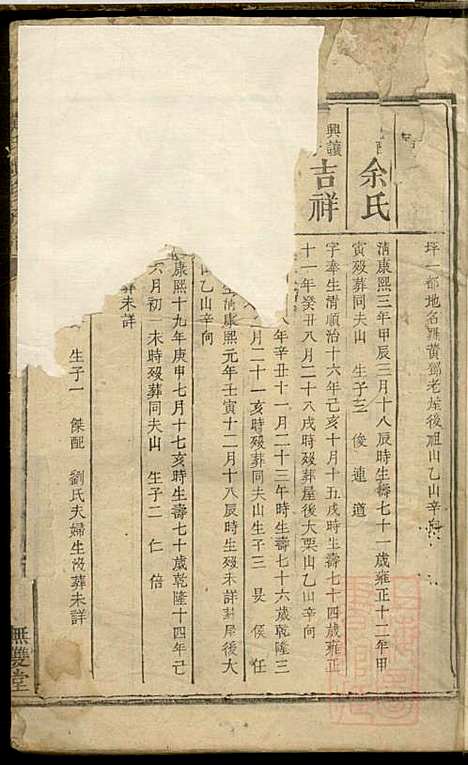 坪一都地名羅黃鄧老屋後祖山乙山辛向
余氏
清康熙三年甲辰三月十八辰時生壽七十一歲雍正十二年甲
寅歿葬同夫山 生子三 俊 連 道
興讓
吉祥
字奉生清順治十六年己亥十月十五戌時生壽七十四歲雍正
十一年癸丑八月二十八戌時歿葬屋後大栗山乙山辛向
八年辛丑十一月二十三午時生壽七十六歲乾隆三
月二十一亥時歿葬同夫山生子三 旻 侯 任
清康熙元年壬寅十二月十八辰時生歿未詳葬屋後大
山乙山辛向
康熙十九年庚申七月十七亥時生壽七十歲乾隆十四年己
六月初一未時歿葬同夫山 生子二 仁 倍
葬未詳
生子一 傑配 劉氏夫婦生歿葬未詳
無雙堂